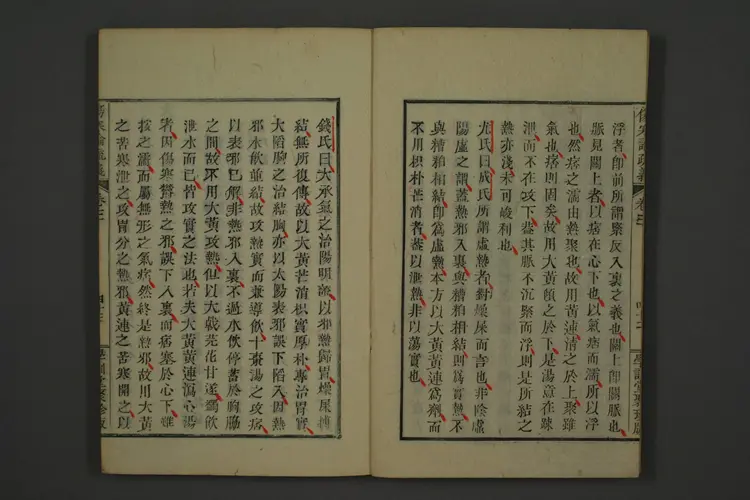 浮者即前所謂緊反入裏之義也關上即關脈也
脈見關上者以痞在心下也以氣痞而濡所以浮
也然痞之濡由熱聚也故用黃連清之於上聚雖
氣也痞則固矣故用大黃傾之於下是湯意在疎
泄而不在攻下蓋其脈不沉緊而浮則是所結之
熱亦淺未可峻利也
尤氏曰成氏所謂虛熱者對燥屎而言也非陰虛
陽虛之謂蓋熱邪入裏與糟粕相結則爲實熱不
與糟粕相結即爲虛熱本方以大黃黃連爲劑而
不用枳朴芒消者蓋以泄熱非以蕩實也
傷寒論疏義 卷三
錢氏曰大承氣之治陽明證以邪熱歸胃燥屎摶
結無所復傳故以大黃芒消枳實厚朴專治胃實
大陷胸之治結胸亦以太陽表邪誤下陷入因熱
邪水飲並結故攻熱實而兼導飲十棗湯之攻痞
以表邪已解非熱邪入裏不過水飲停蓄於胸脇
之間故不用大黃攻熱但以大戟芫花甘遂蠲飲
泄水而已皆攻實之法也若夫大黃黃連瀉心湯
者因傷寒鬱熱之邪誤下入裏而痞塞於心下雖
按之濡而屬無形之氣痞然終是熱邪故用大黃
之苦寒泄之以攻胃分之熱邪黃連之苦寒開之以
傷寒論疏義 卷三 四十三